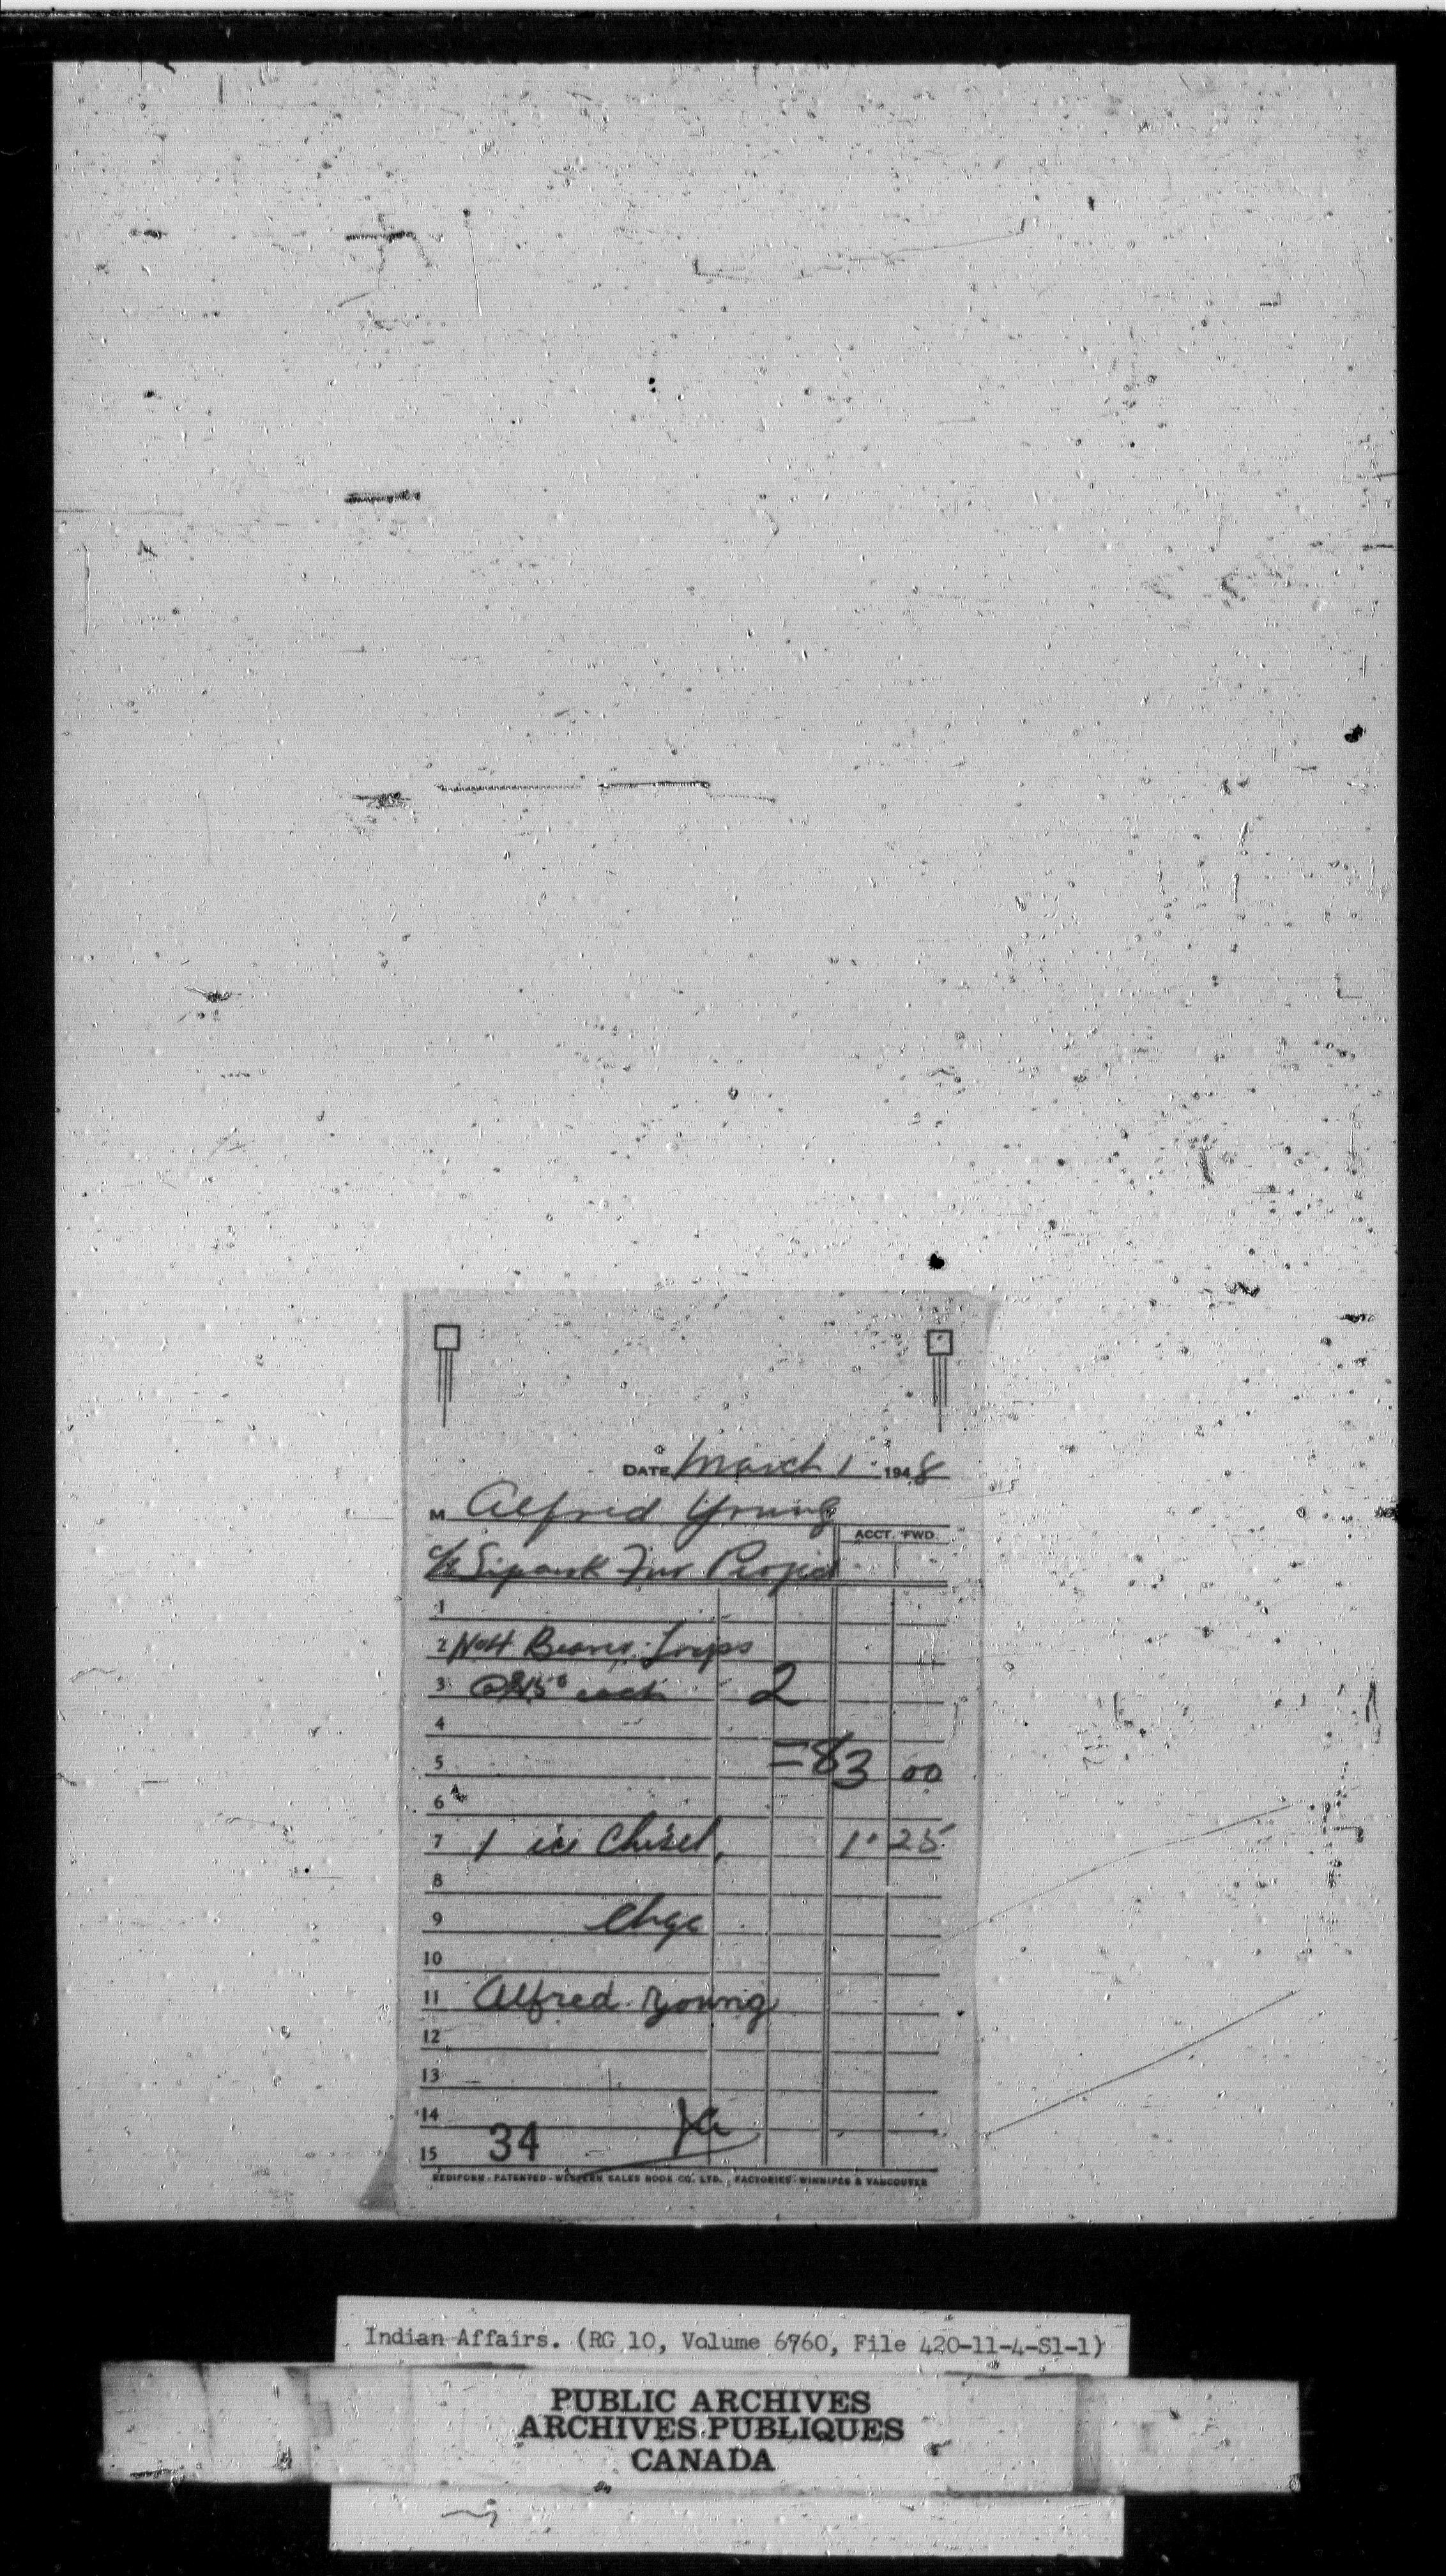 DATE March 1 1948
M Alfred Young
ACCT. FWD.
c/o Sipanok Fur Project
1
2 No 4 Beaver Traps
3 @ each 2
4
5 = 83 00
6
7 1 ice Chisel, 1.25
8
9 Chge
10
11 Alfred Young
12
13
14
15 34
REDIFORM - PATENTED - WESTERN SALES BOOK CO. LTD., FACTORIES - WINNIPEG & VANCOUVER
Indian Affairs. (RG 10, Volume 6760, File 420-11-4-S1-1)
PUBLIC ARCHIVES
ARCHIVES PUBLIQUES
CANADA